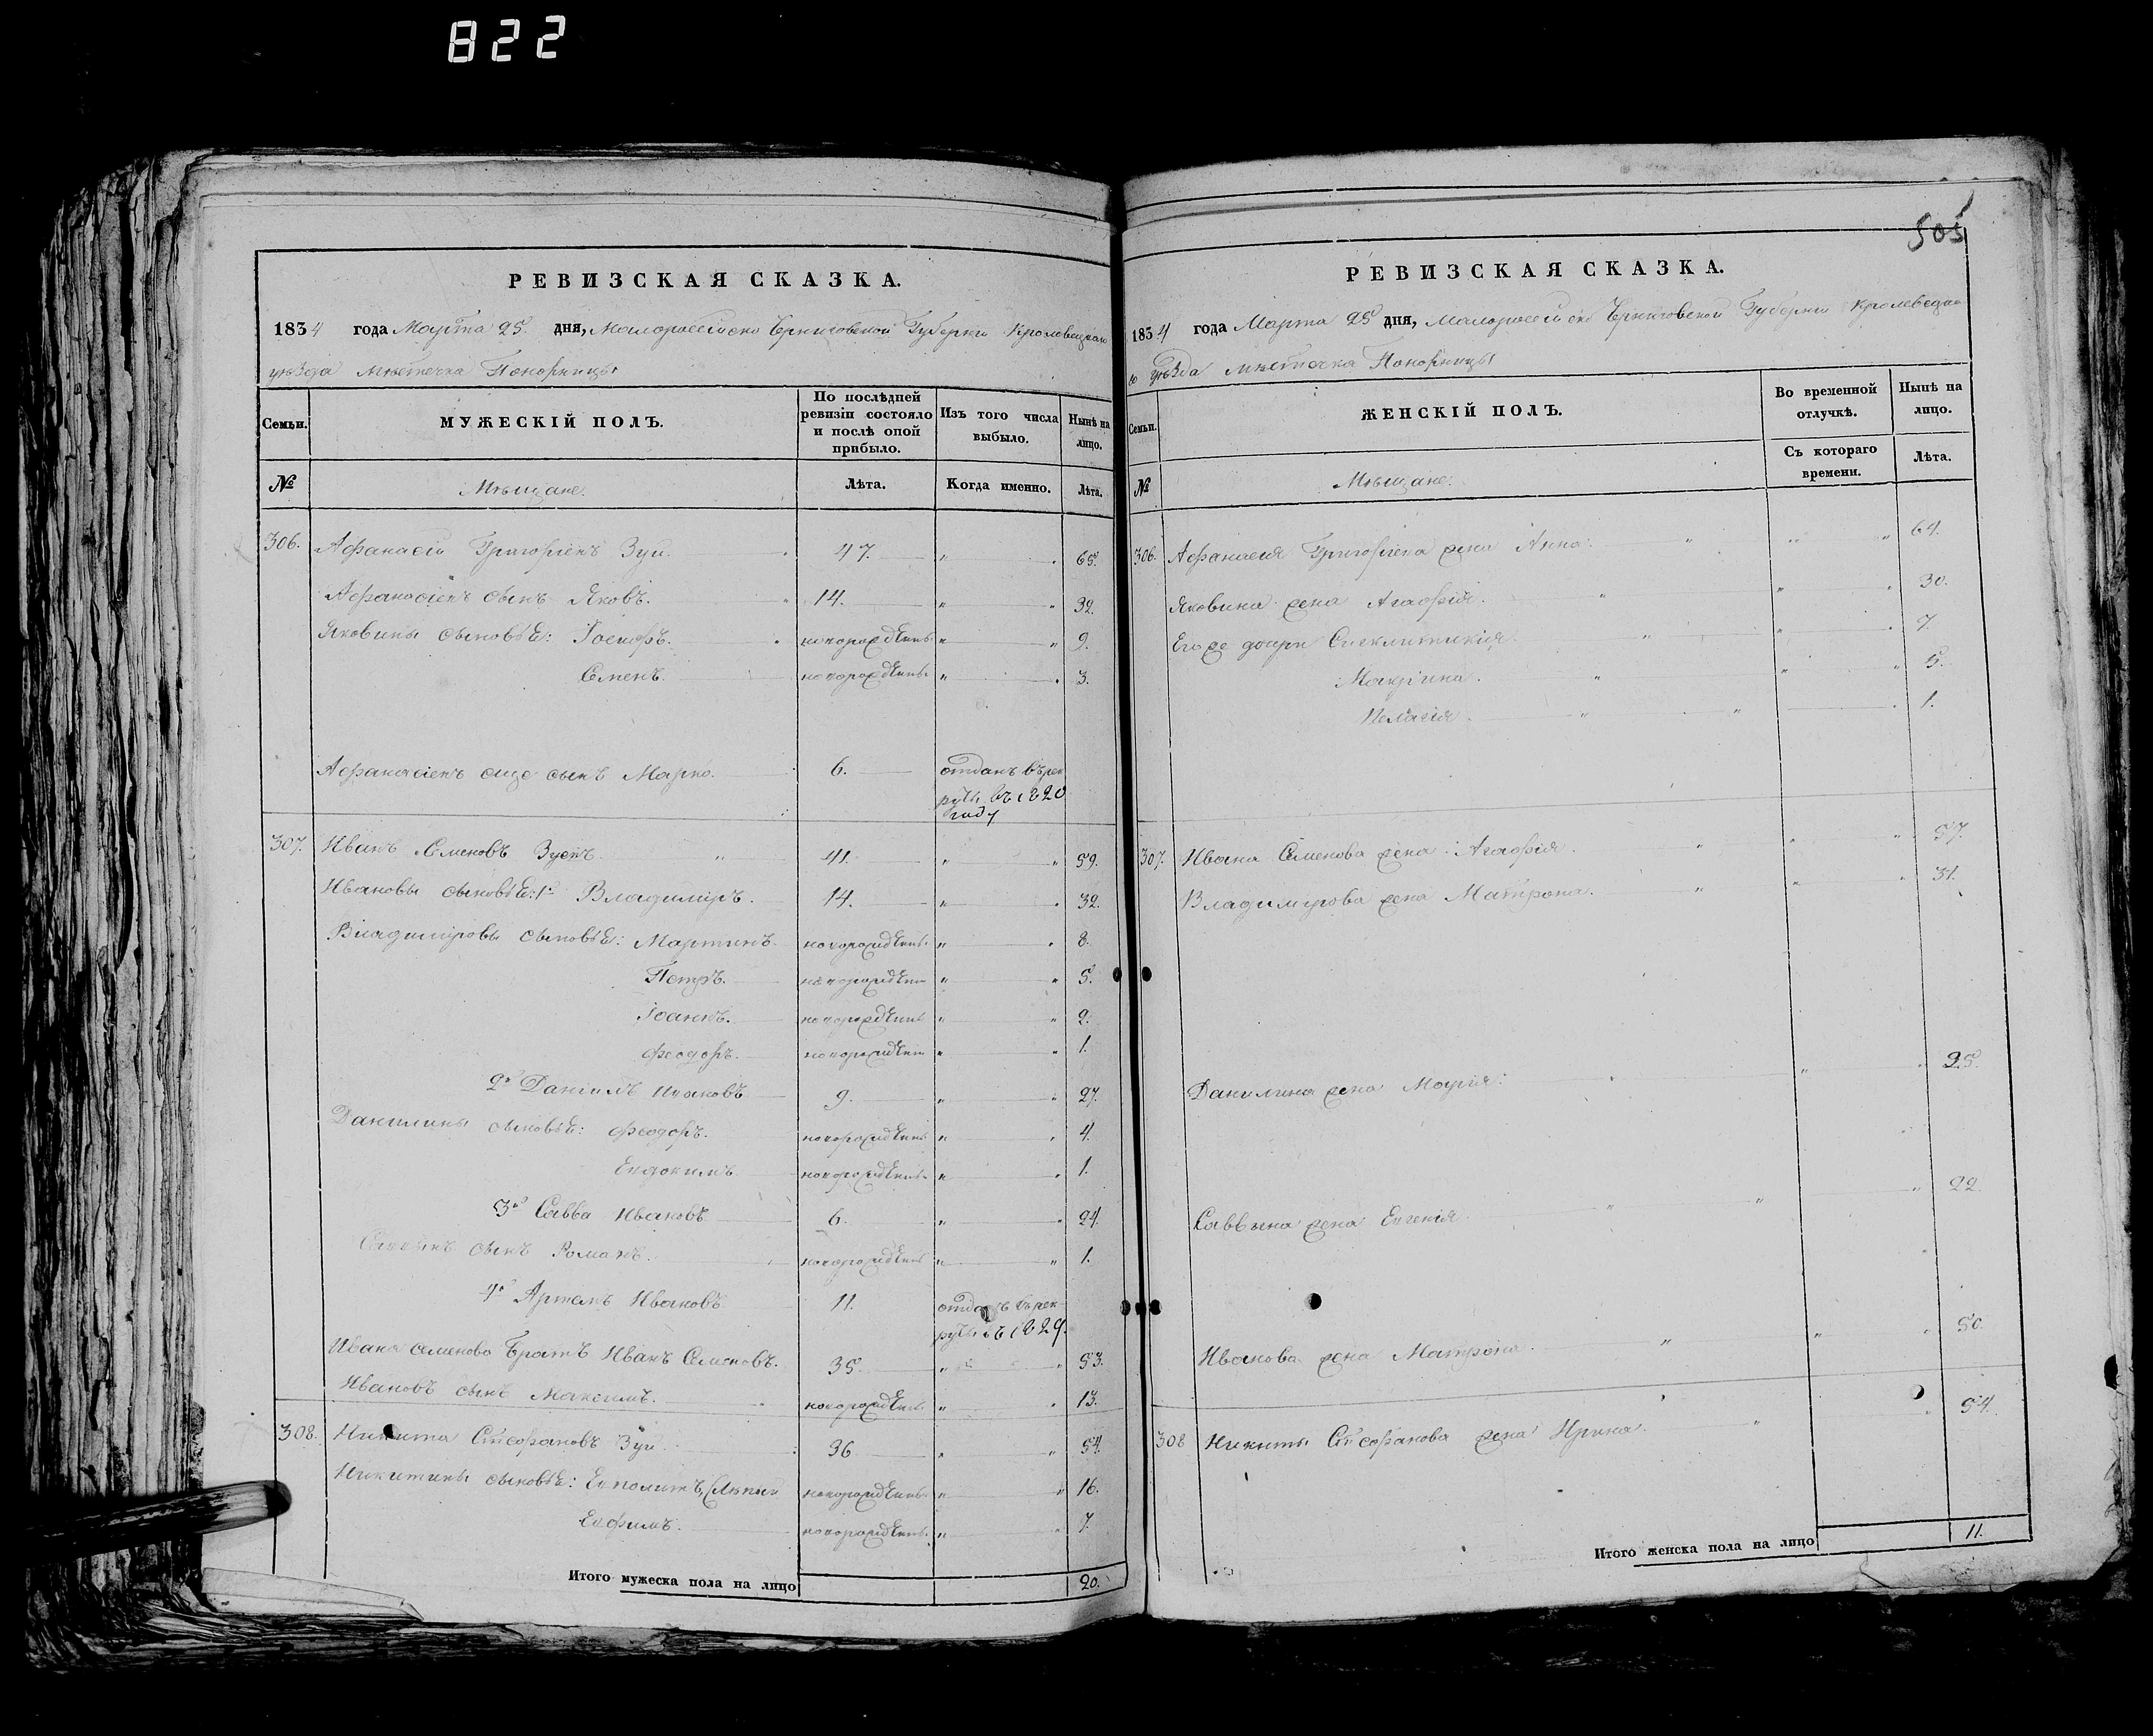 822
РЕВИЗСКАЯ СКАЗКА.
1834 года Марта 25 дня, Малороссийско Черниговской Губернии Кролевецкаго
уезда местечка Понорницы
Семьи. МУЖЕСКІЙ ПОЛЪ. По послѣдней ревизіи состояло и послѣ оной прибыло. Изъ того числа выбыло. Нынѣ на лицо.
№ Мѣщане. Лѣта. Когда именно. Лѣта.
306. Афанасій Григоріевъ Зуй. 47. " " 65.
Афанасіевъ сынъ Яковъ. 14. " " 32.
Яковины сыновья: Іосифъ. новорожденъ " " 9.
Семенъ. новорожденъ " " 3.
Афанасіевъ еще сынъ Марко. 6. отданъ въ рек
руты въ 1820
году
307. Иванъ Семеновъ Зуевъ. " 41. " " 59.
Ивановы сыновья: 1й Владиміръ. 14. " " 32.
Владиміровы сыновья: Мартинъ. новорожденъ " " 8.
Петръ. новорожденъ " " 5.
Іоаннъ. новорожденъ " " 2.
Феодоръ. новорожденъ " " 1.
2й Даніилъ Ивановъ 9. " " 27.
Даніилины сыновья: Феодоръ. новорожденъ " " 4.
Евдокимъ. новорожденъ " " 1.
3й Савва Ивановъ 6. " " 24.
Саввинъ сынъ Романъ. новорожденъ " " 1.
4й Артемъ Ивановъ 11. отданъ въ рек
руты въ 1829.
Ивана Семенова братъ Иванъ Семеновъ. 35. " " 53.
Ивановъ сынъ Максимъ. новорожденъ " " 13.
308. Никита Стефановъ Зуй. 36 " " 54.
Никитины сыновья: Евполитъ, новорожденъ " " 16.
Евфимъ. новорожденъ " " 7.
Итого мужеска пола на лицо 20.
505
РЕВИЗСКАЯ СКАЗКА.
1834 года Марта 25 дня, Малороссийско Черниговской Губернии Кролевецка
го уезда местечка Понорницы
Семьи. ЖЕНСКІЙ ПОЛЪ. Во временной отлучкѣ. Нынѣ на лицо.
Съ котораго времени. Лѣта.
№ Мѣщане.
306. Афанасія Григоріева жена Анна. " " " 64.
Яковина жена Агафія. " " " 30.
Его же дочери Синклитикія. " " " 7.
Макрина. " " " 5.
Пелагія. " " " 1.
307. Ивана Семенова жена Агафія. " " " 57.
Владимірова жена Матрона. " " " 31.
Данилина жена Марія. " " " 25.
Саввина жена Евгенія " " " 22.
Иванова жена Матрона. " " " 50.
308 Никиты Стефанова жена Ирина. " " 54.
Итого женска пола на лицо 11.